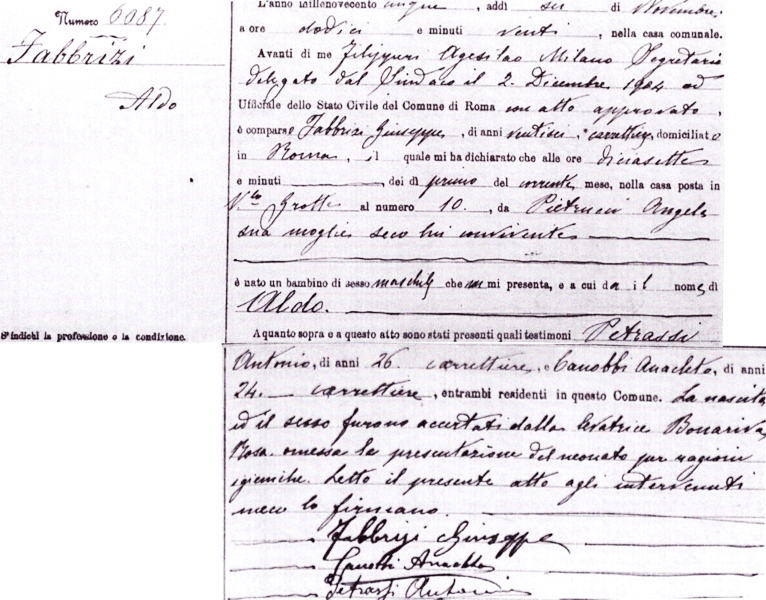 Numero 6087
Fabbrizi
Aldo
*S'indichi la professione o la condizione.
L'anno millenovecento cinque, addì sei di Novembre
a ore dodici e minuti venti, nella casa comunale.
Avanti di me Filippuci Agesilao Milano Segretario
delegato dal Sindaco il 2 Dicembre 1904 ad
Ufficiale dello Stato Civile del Comune di Roma con atto approvato,
è comparso Fabbrizi Giuseppe, di anni ventisei, *carrettiere, domiciliato
in Roma, il quale mi ha dichiarato che alle ore diciasette
e minuti dei dì primo del corrente mese, nella casa posta in
V.lo Grotte al numero 10, da Pietrucci Angela
sua moglie seco lui convivente
è nato un bambino di sesso maschile che non mi presenta, e a cui da il nome di
Aldo.
A quanto sopra e a questo atto sono stati presenti quali testimoni Petrassi
Antonio, di anni 26 carrettiere, e Canobbi Anacleto, di anni
24. carrettiere, entrambi residenti in questo Comune. La nascita
ed il sesso furono accertati dalla levatrice Bonariva
Rosa. omessa la presentazione del neonato per ragioni
igieniche. Letto il presente atto agli intervenuti
meco lo firmano.
Fabbrizi Giuseppe
Canobbi Anacleto
Petrassi Antonio